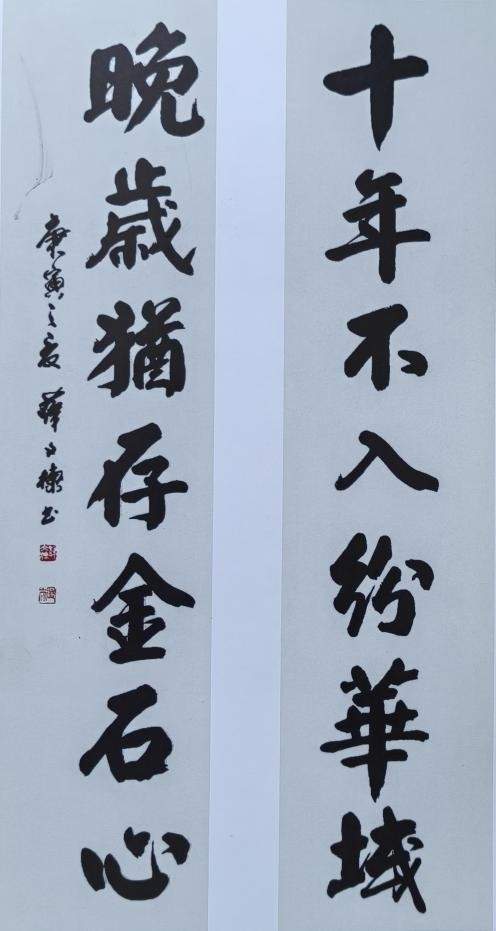 十年不入紛華域
晚歲猶存金石心
庚寅之夏 薛夫彬书